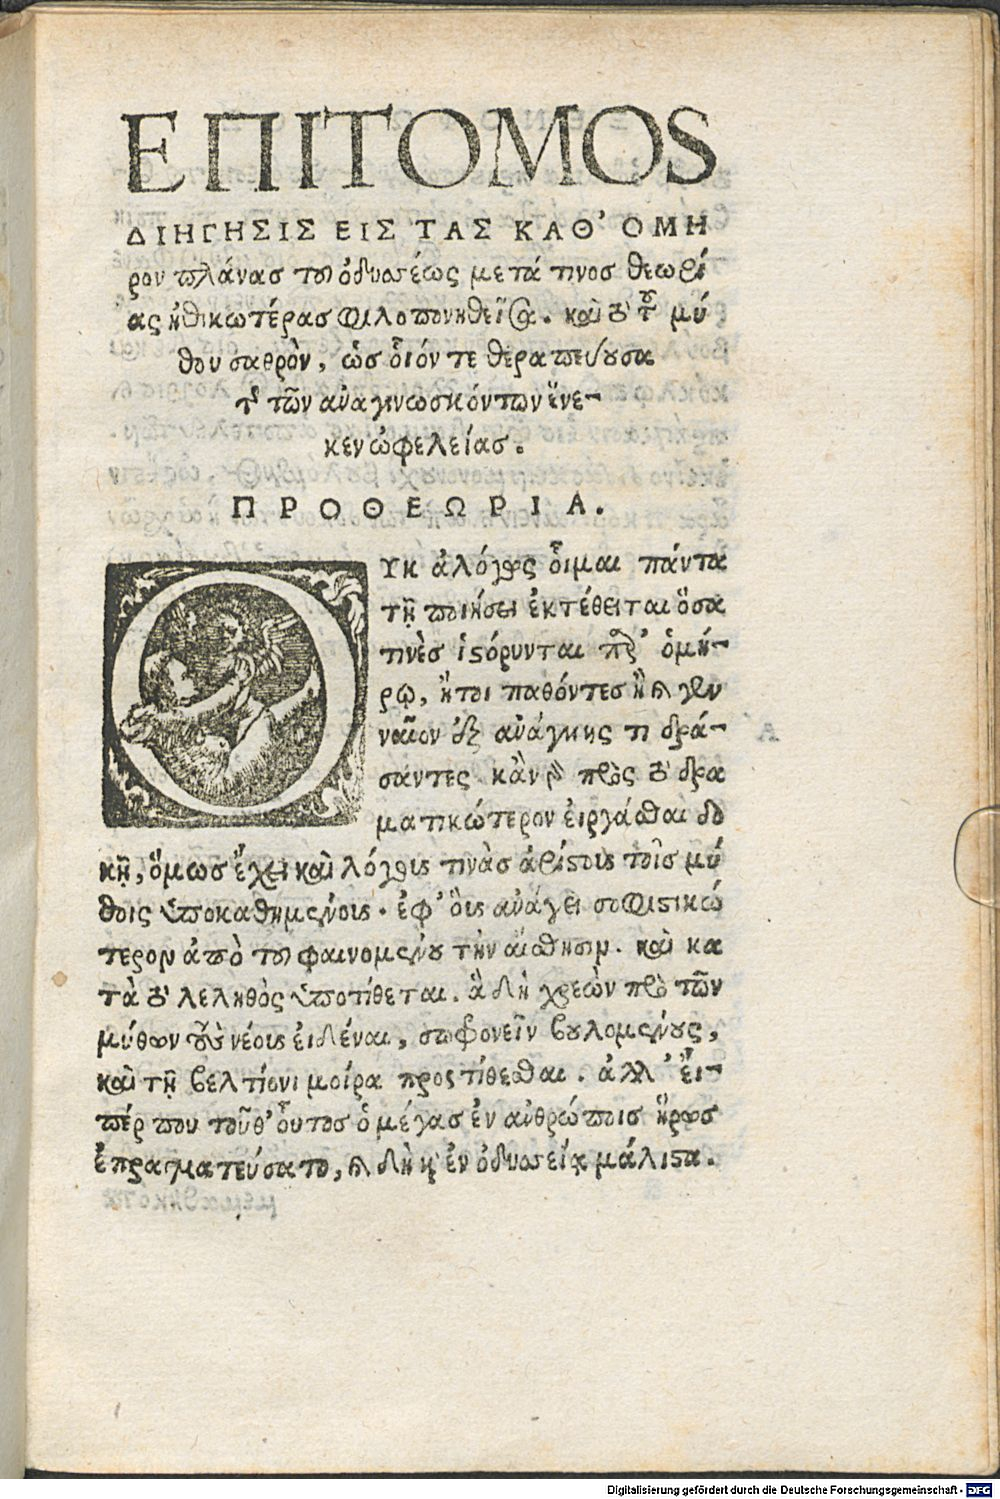 ΕΠΙΤΟΜΟΣ
ΔΙΗΓΗΣΙΣ ΕΙΣ ΤΑΣ ΚΑΘ' ΟΜΗ
ρου πλάνασ του ὀδυσσέως μετά τινοσ θεωρί
ας ἠθικωτέρασ φιλοπονηθεῖσα. καὶ τὸ τοῦ μύ
θου σαθρὸν, ὡσ οἷόν τε θεραπεύουσα
τῆς τῶν ἀναγινωσκόντων ἕνε-
κεν ὠφελείασ.
ΠΡΟΘΕΩΡΙΑ.
ΟΥΚ ἀλόγως οἶμαι πάντα
τῇ ποιήσει ἐκτέθειται ὅσα
τινὲσ ἱστόρυνται παρ' ὁμή-
ρῳ, ἤτοι παθόντεσ ἢ καὶ γεν
ναῖον ἐξ ἀνάγκης τι δρά-
σαντες κἂν γὰρ πρὸς τὸ δρα
ματικώτερον εἰργάσθαι δο
κῇ, ὅμωσ ἔχει καὶ λόγουσ τινὰσ ἀρίστοις τοῖσ μύ
θοις ὑποκαθημένοις. ἐφ' οἷς ἀνάγει σοφιστικώ
τερον ἀπὸ του φαινομένου τὴν αἴσθησιν. καὶ κα
τὰ τὸ λεληθὸς ὑποτίθεται. ἃ δὴ χρεὼν πρὸ τῶν
μύθων τοὺς νέους εἰδέναι, σωφρονεῖν βουλομένους,
καὶ τῇ βελτίονι μοίρα προστίθεσθαι. ἀλλ' εἴ-
πέρ που τοῦθ' οὗτοσ ὁ μέγασ ἐν ἀνθρώποισ ἥρωσ
ἐπραγματεύσατο, καὶ δὴ κἀν ὀδυσσείᾳ μάλιστα.
Digitalisierung gefördert durch die Deutsche Forschungsgemeinschaft - DFG